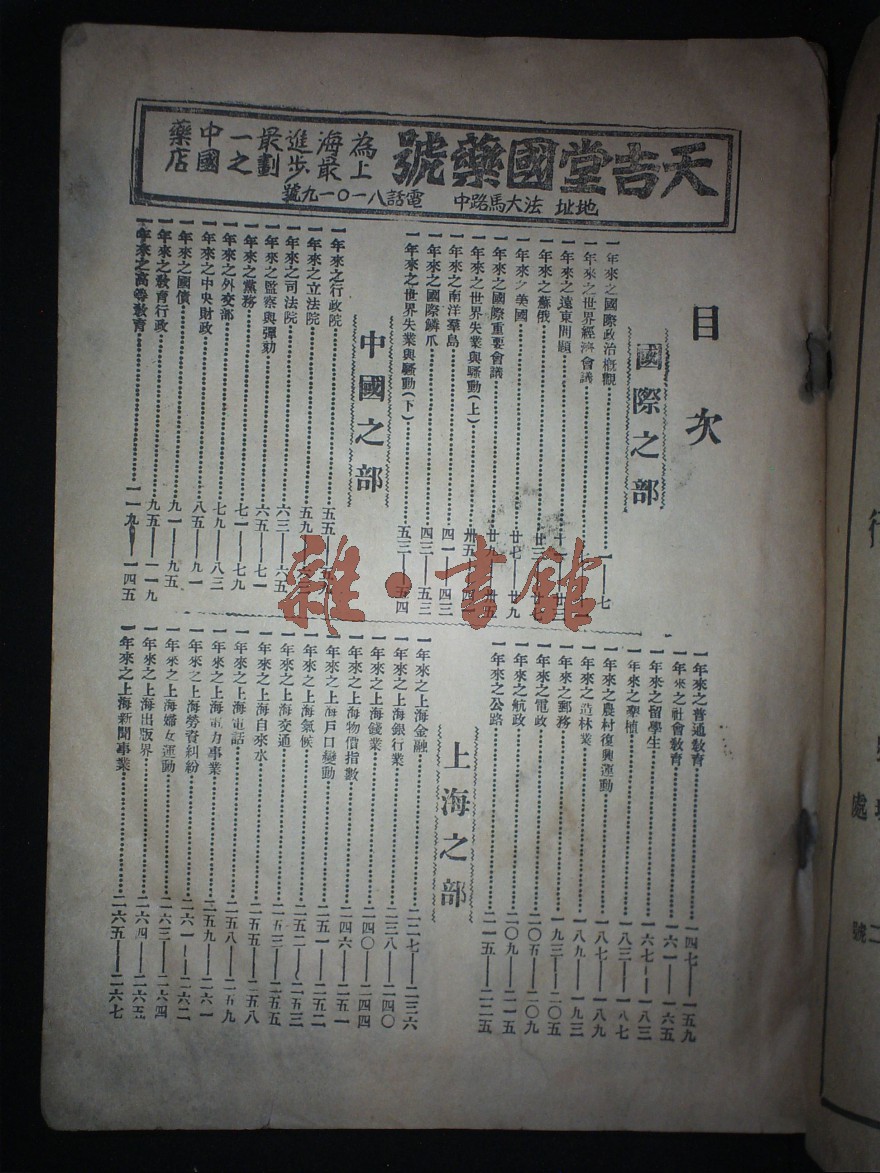 天吉堂國藥號
為上海最進步最劃一之中國藥店
地址 法大馬路中 電話八一〇一九號
目次
國際之部
一年來之國際政治概觀……一——七
一年來之世界經濟會議
一年來之遠東問題
一年來之蘇俄
一年來之美國……廿七——廿九
一年來之國際重要會議……廿九
一年來之世界失業與騷動(上)……卅五
一年來之南洋羣島……四一——四三
一年來之國際鱗爪……四三——五三
一年來之世界失業與騷動(下)……五三——五四
中國之部
一年來之行政院……五五
一年來之立法院……五九
一年來之司法院……六三——六五
一年來之監察與彈劾……六五——七一
一年來之黨務……七一——七九
一年來之外交部……七九——八三
一年來之中央財政……八五——九一
一年來之國債……九一——九五
一年來之教育行政……九五——一一九
一年來之高等教育……一一九——一四五
一年來之普通教育……一四七——一五九
一年來之社會教育……一六一——一六五
一年來之留學生……一六七——一八三
一年來之墾植……一八三——一八七
一年來之農村復興運動……一八七——一八九
一年來之造林業……一八九——一九三
一年來之郵務……一九三——二〇五
一年來之電政……二〇五——二〇九
一年來之航政……二〇九——二一五
一年來之公路……二一五——二二五
上海之部
一年來之上海金融……二二七——二三六
一年來之上海銀行業……二三八——二四〇
一年來之上海錢業……二四〇——二四四
一年來之上海物價指數……二四六——二五一
一年來之上海戶口變動……二五一——二五二
一年來之上海氣候……二五二——二五三
一年來之上海交通……二五三——二五五
一年來之上海自來水……二五五——二五八
一年來之上海電話……二五八——二五九
一年來之上海電力事業……二五九——二六一
一年來之上海勞資糾紛……二六一——二六二
一年來之上海婦女運動……二六三——二六四
一年來之上海出版界……二六四——二六五
一年來之上海新聞事業……二六五——二六七
雜·書館
處
號